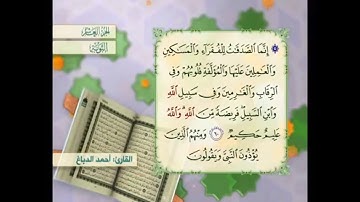 الجزء العاشر
التوبة
۞ إِنَّمَا ٱلصَّدَقَٰتُ لِلْفُقَرَآءِ وَٱلْمَسَٰكِينِ
وَٱلْعَٰمِلِينَ عَلَيْهَا وَٱلْمُؤَلَّفَةِ قُلُوبُهُمْ وَفِى
ٱلرِّقَابِ وَٱلْغَٰرِمِينَ وَفِى سَبِيلِ ٱللَّهِ
وَٱبْنِ ٱلسَّبِيلِ فَرِيضَةً مِّنَ ٱللَّهِ وَٱللَّهُ
عَلِيمٌ حَكِيمٌ ٦٠ وَمِنْهُمُ ٱلَّذِينَ
يُؤْذُونَ ٱلنَّبِىَّ وَيَقُولُونَ
القارئ: أحمد الدباغ